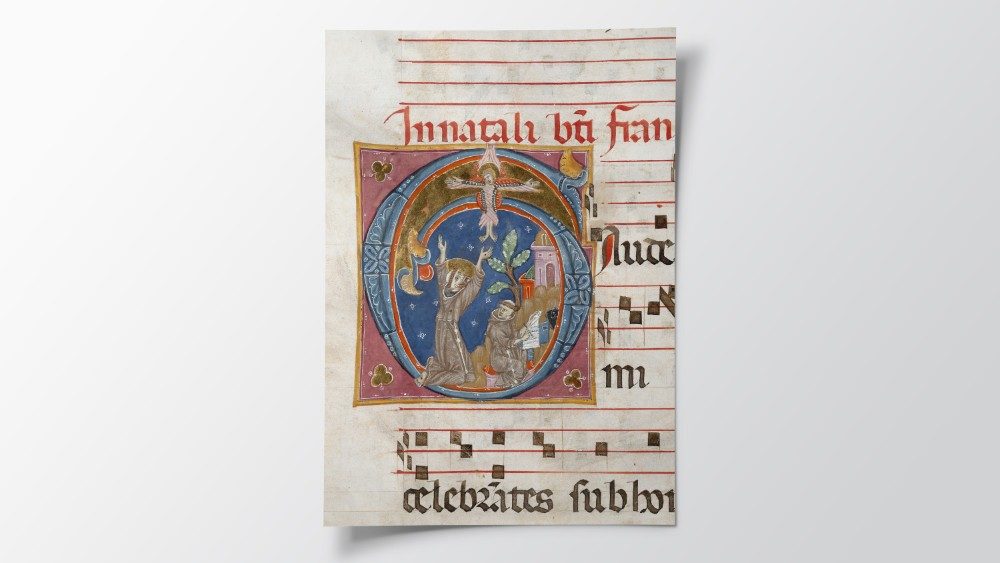 In natali bt̄i fran
GAude
mi
celebrātes sub hon